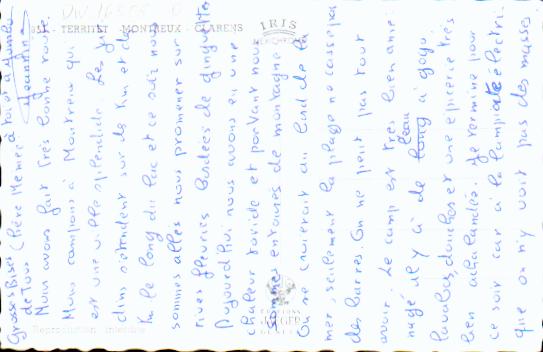 832 - TERRITET - MONTREUX - CLARENS
IRIS
MEXICHROME
Nous avons fait très bonne route.
Nous campons à Montreux qui
est une ville splendide. Les
dins s'étendent sur des Km et des
Km le long du lac et ce soir nous
sommes allés nous promener sur
rives fleuries bordées de guinguettes
Aujourd'hui nous avons eu une
chaleur torride et pourtant nous
sommes entourés de montagne
On se croirait au bord de la
mer, seulement la plage ne casse pas
des barres. On ne peut pas tout
avoir. Le camp est très bien amé-
nagé il y a de l'eau à gogo,
lavabos, douches et une épicerie très
bien achalandée. Je termine pour
ce soir car à la lampe électri-
que on n'y voit pas des masses
EDITIONS
JAEGER
GENEVE
Reproduction interdite